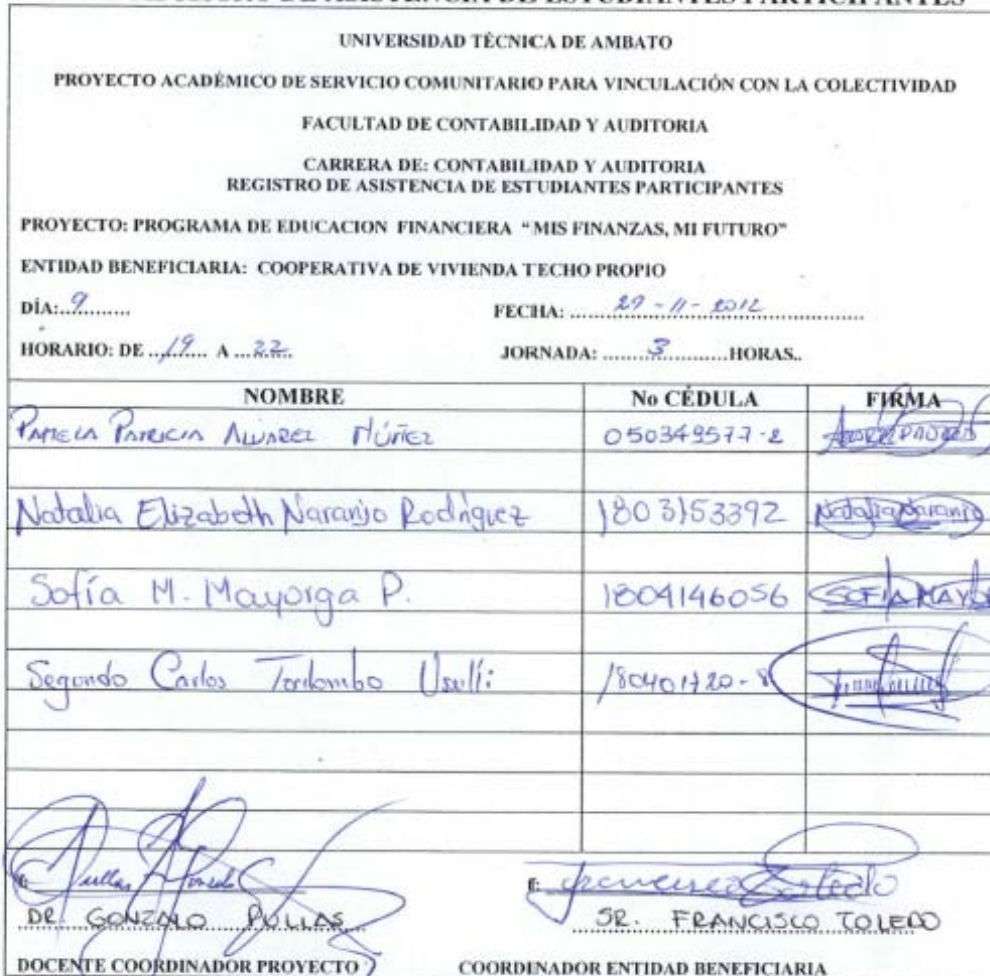 UNIVERSIDAD TÉCNICA DE AMBATO
PROYECTO ACADÉMICO DE SERVICIO COMUNITARIO PARA VINCULACIÓN CON LA COLECTIVIDAD
FACULTAD DE CONTABILIDAD Y AUDITORIA
CARRERA DE: CONTABILIDAD Y AUDITORIA
REGISTRO DE ASISTENCIA DE ESTUDIANTES PARTICIPANTES
PROYECTO: PROGRAMA DE EDUCACION FINANCIERA “MIS FINANZAS, MI FUTURO”
ENTIDAD BENEFICIARIA: COOPERATIVA DE VIVIENDA TECHO PROPIO
DÍA: 9 FECHA: 29-11-2012
HORARIO: DE 19 A 22 JORNADA: 3 HORAS..
NOMBRE No CÉDULA FIRMA
Pamela Patricia Alvarez Núñez 050349577-2
Natalia Elizabeth Naranjo Rodríguez 1803153392 Natalia Naranjo
Sofía M. Mayorga P. 1804146056 SOFIA MAYOR
Segundo Carlos 
f: f:
DR. GONZALO PULLAS SR. FRANCISCO TOLEDO
DOCENTE COORDINADOR PROYECTO COORDINADOR ENTIDAD BENEFICIARIA